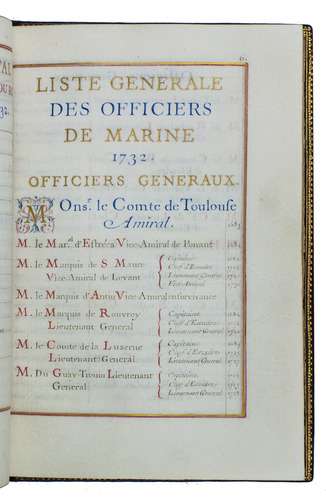 6.
LISTE GENERALE
DES OFFICIERS
DE MARINE
1732.
OFFICIERS GENERAUX.
MOnsr. le Comte de Toulouse
Amiral. 1683
M. le Maral. d'Estrées Vice-Amiral de Ponant 1684
M. le Marquis de S. Maure Capitaine
Vice-Amiral de Levant Chef d'Escadre
Lieutenant General
Vice-Amiral
M. le Marquis d'Antin Vice-Amiral en survivance
M. le Marquis de Rouvroy Capitaine
Lieutenant General Chef d'Escadre
Lieutenant General
M. le Comte de la Luzerne Capitaine
Lieutenant General Chef d'Escadre
Lieutenant General
M. Du Guay-Troüin Lieutenant Capitaine
General Chef d'Escadre
Lieutenant General 1728